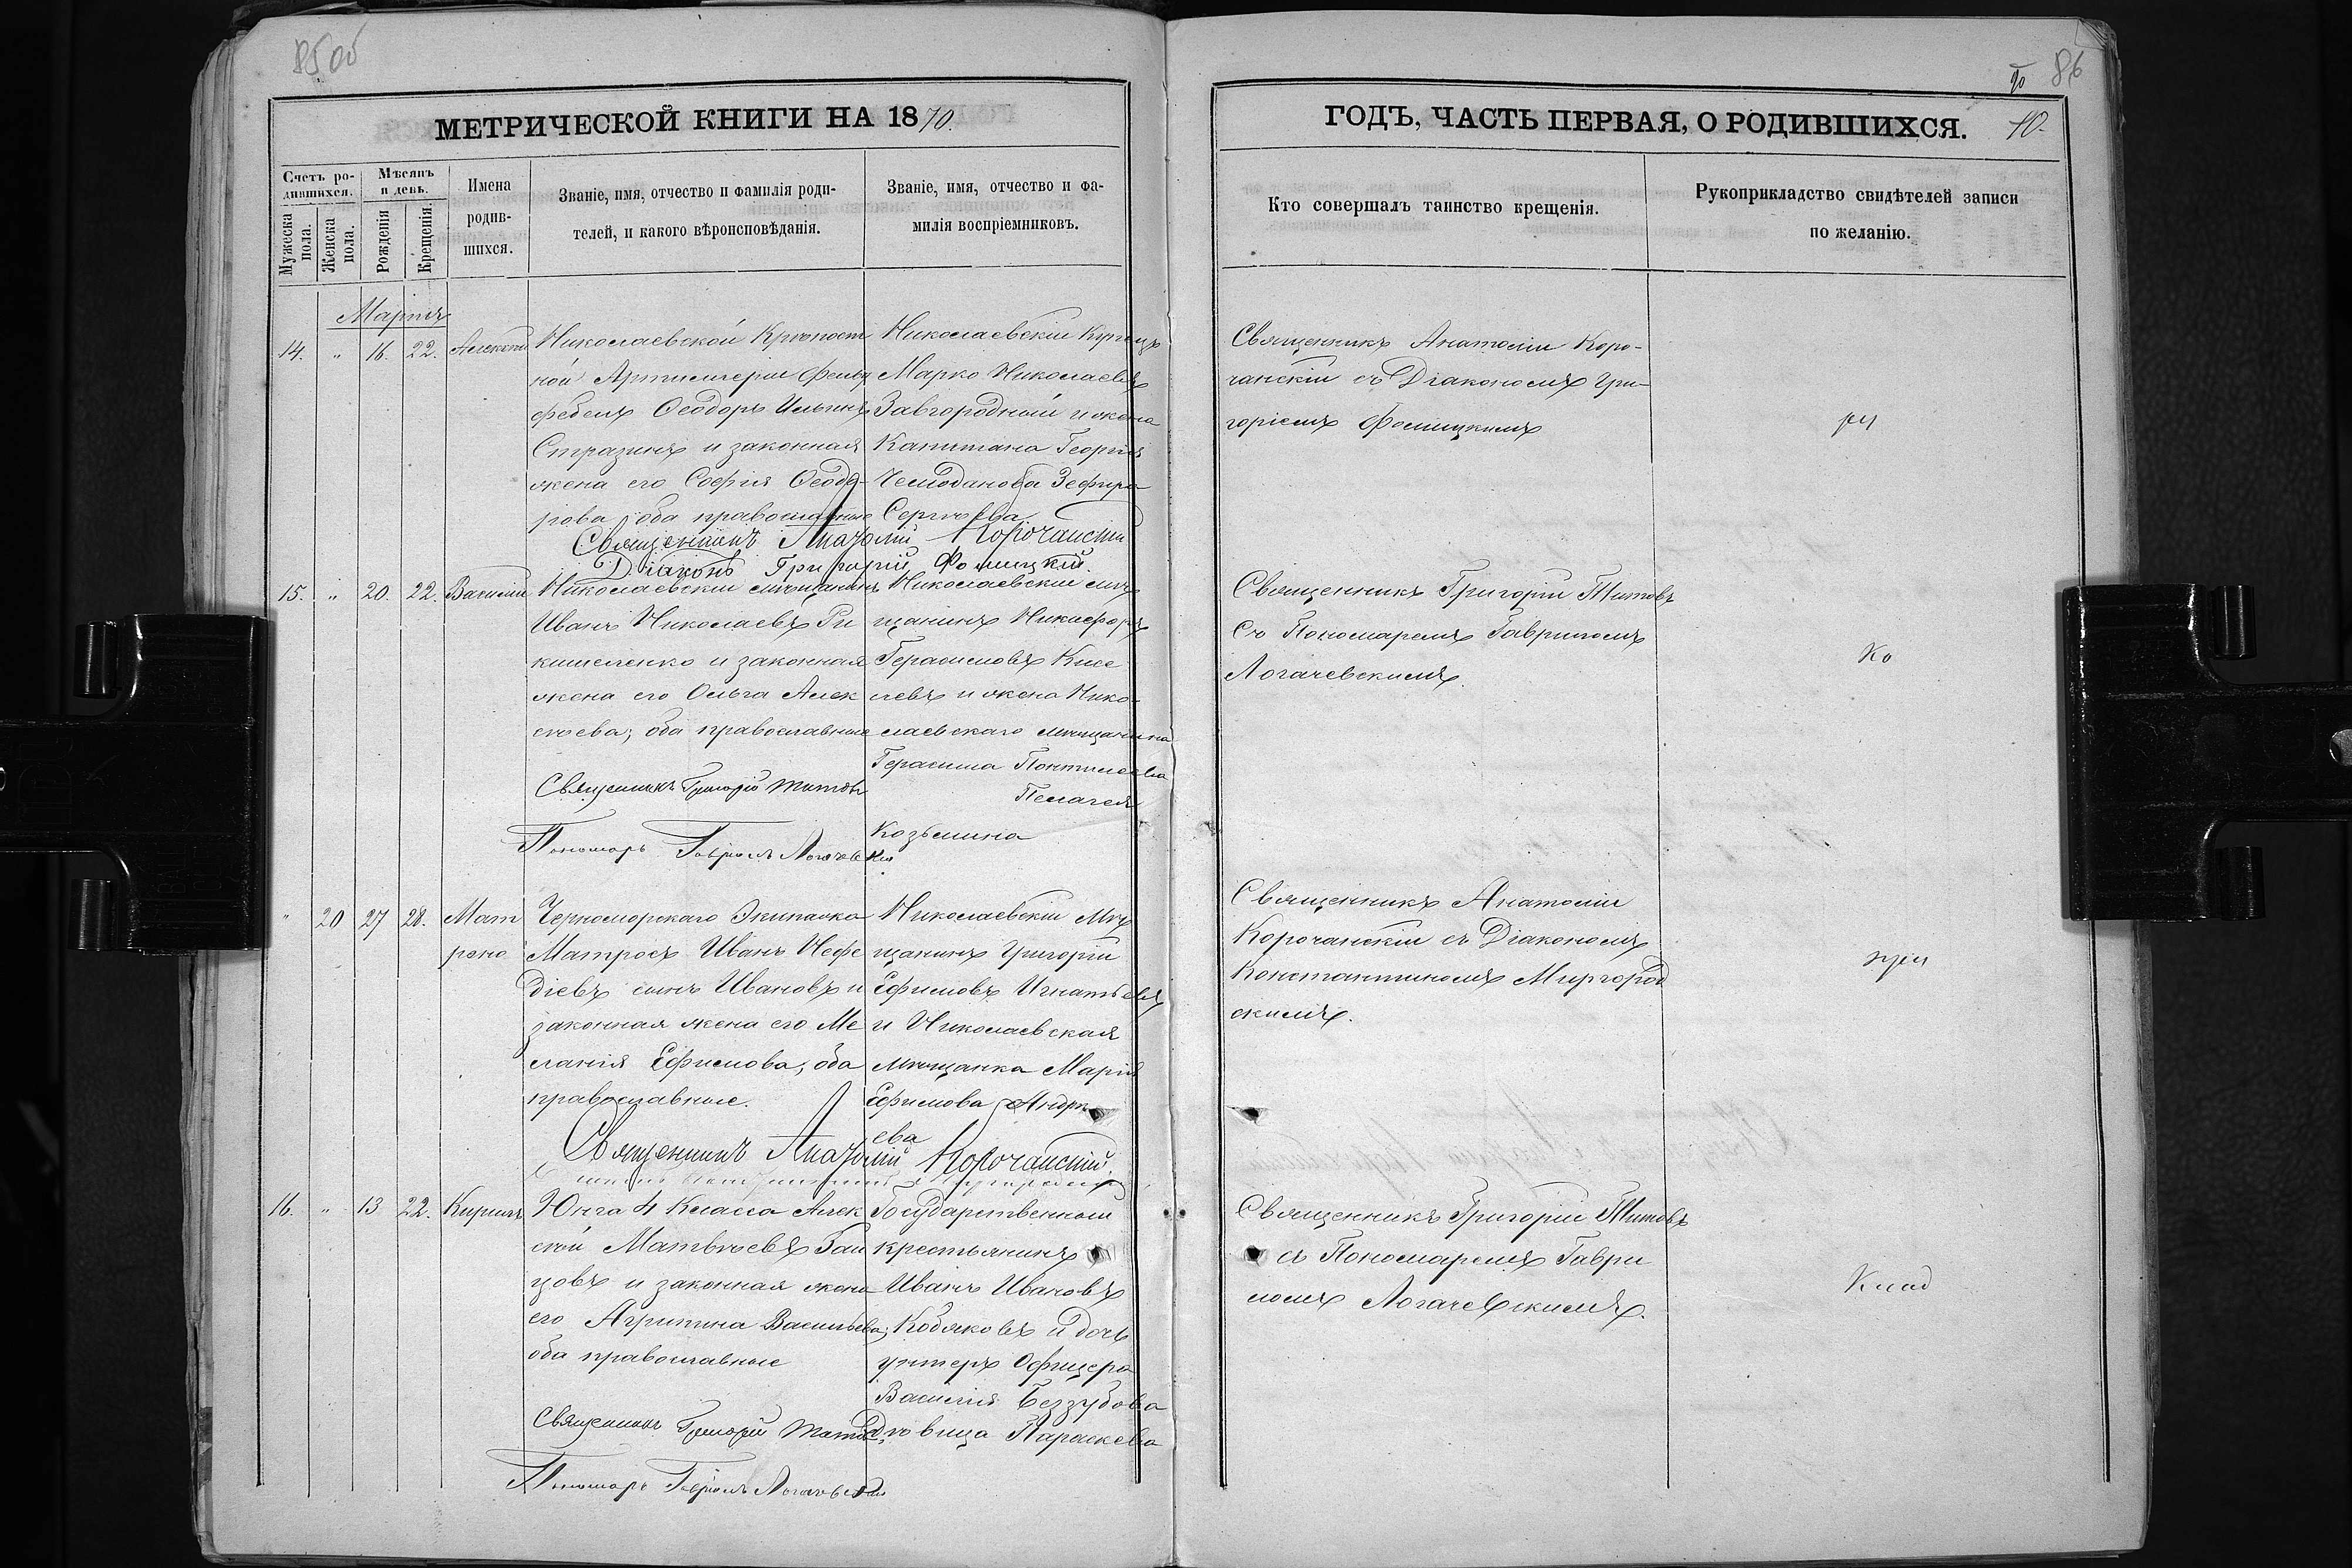 85 об
МЕТРИЧЕСКОЙ КНИГИ НА 1870.
Счетъ ро-
дившихся.
Мѣсяцъ
и день.
Мужеска
пола.
Женска
пола.
Рожденія
Крещенія.
Имена
родив-
шихся.
Званіе, имя, отчество и фамилія роди-
телей, и какого вѣроисповѣданія.
Званіе, имя, отчество и фа-
милія воспріемниковъ.
Мартъ
14. " 16. 22. Алексѣй
Николаевской Крѣпост
ной Артиллеріи Фельд
фебель Ѳеодоръ Ильинъ
Стразинъ и законная
жена его Софія Ѳеодо-
рова оба православные
Николаевскій Купецъ
Марко Николаевъ
Завгородній и жена
Капитана Георгія
Чемоданова Зефира
Сергѣева
Священникъ Анатолій Корочанскій
Діаконъ Григорій Фомицкій.
15. " 20. 22. Василій
Николаевскій мѣщанинъ
Иванъ Николаевъ Ри
кишенко и законная
жена его Ольга Алек
сѣева; оба православные
Николаевскій мѣ
щанинъ Никифоръ
Герасимовъ Кисе
левъ и жена Нико-
лаевскаго мѣщанина
Герасима
Пелагея
Козьмина
Священникъ Григорій Титовъ
Пономарь Гавріилъ Логачевскій
" 20 27 28. Мат
рона
Черноморскаго Экипажа
Матросъ Иванъ Мефо
діевъ сынъ Ивановъ и
законная жена его Ме
ланія Ефимова, оба
православные.
Николаевскій Мѣ
щанинъ Григорій
Ефимовъ Игнатьевъ
и Николаевская
мѣщанка Марія
Ефимова Андре
ева
Священникъ Анатолій Корочанскій.
16. " 13 22. Кириллъ
Юнга 4 Класса Алек
сѣй Матвѣевъ Гай
цовъ и законная жена
его Агрипина Васильева;
оба православные
Государственный
крестьянинъ
Иванъ Ивановъ
Кобяковъ и дочь
унтеръ Офицера
Василія Беззубова
Дѣвица Параскева
Священникъ Григорій Титовъ
Пономарь Гавріилъ Логачевскій
86
ГОДЪ, ЧАСТЬ ПЕРВАЯ, О РОДИВШИХСЯ.
Кто совершалъ таинство крещенія.
Рукоприкладство свидѣтелей записи
по желанію.
Священникъ Анатолій Коро-
чанскій съ Діакономъ Гри-
горіемъ Фомицкимъ
Священникъ Григорій Титовъ
Съ Пономаремъ Гавріиломъ
Логачевскимъ.
Ко
Священникъ Анатолій
Корочанскій съ Діакономъ
Константиномъ Миргород
скимъ.
Священникъ Григорій Титовъ
съ Пономаремъ Гаври
ломъ Логачевскимъ.
Клад